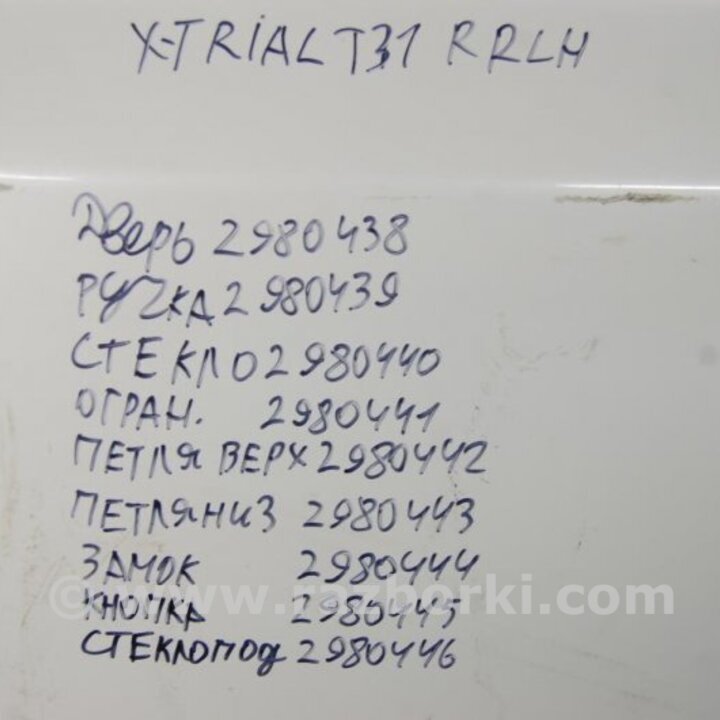 X-TRIAL T31 RRLH
Дверь 2980438
РУЧКА 2980439
СТЕКЛО 2980440
ОГРАН. 2980441
ПЕТЛЯ ВЕРХ 2980442
ПЕТЛЯ НИЗ 2980443
ЗАМОК 2980444
КНОПКА 2980445
СТЕКЛОПОД 2980446
© www.razborki.com